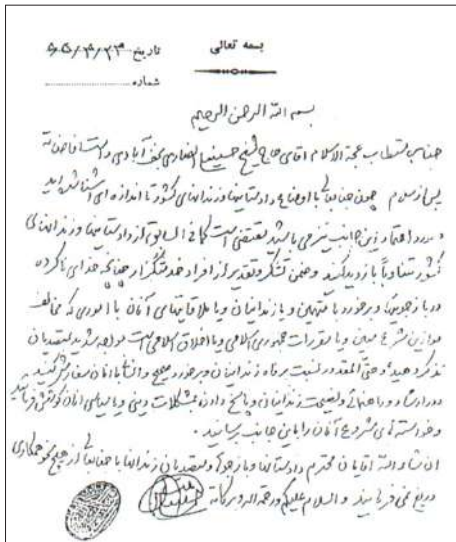 بسمه تعالی
تاریخ
شماره
بسم الله الرحمن الرحیم
جناب مستطاب حجة الاسلام آقای حاج شیخ حسینعلی انصاری نجف آبادی دامت افاضاته
پس از سلام چون جنابعالی با اوضاع دادستانیها و زندانهای کشور تا اندازه ای آشنا شده اید
و مورد اعتماد این جانب نیز می باشید مقتضی است کما فی السابق از دادستانیها و زندانهای
کشور متناوبا بازدید کنید و ضمن تشکر و تقدیر از افراد خدمتگزار چنانچه خدای ناکرده
در بازجوییها و برخورد با متهمین و یا زندانیان و یا ملاقاتیهای آنان با اموری که مخالف
موازین شرع مبین و یا مقررات جمهوری اسلامی و یا اخلاق اسلامی است مواجه شدید به متصدیان
تذکر دهید و حتی المقدور نسبت به رفاه زندانیان و برخورد صحیح و انسانی با آنان سفارش کنید
و در ارشاد و راهنمائی و نصیحت زندانیان و پاسخ دادن به مشکلات دینی و یا سیاسی آنان کوشش فرمائید
و خواسته های مشروع آنان را به این جانب برسانید .
ان شاء الله آقایان محترم دادستانها و بازجوها و متصدیان زندانها با جنابعالی از هیچ نحو همکاری
دریغ نمی فرمایند و السلام علیکم و رحمة الله و برکاته